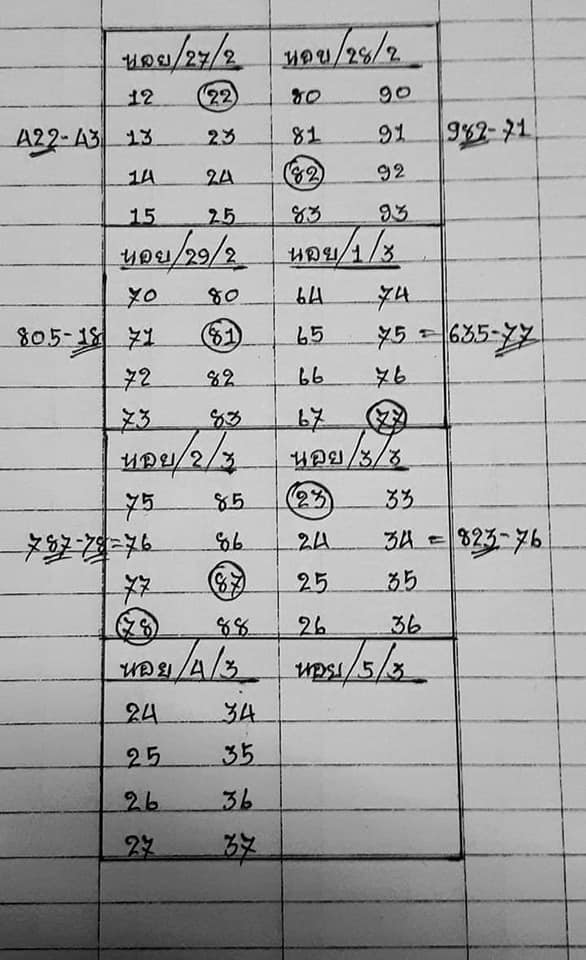 นอย/27/2 นอย/28/2
12 22 80 90
422-43 13 23 81 91 982-71
14 24 82 92
15 25 83 93
นอย/29/2 นอย/1/3
70 80 64 74
805-18 71 81 65 75 = 635-77
72 82 66 76
73 83 67 77
นอย/2/3 นอย/3/3
75 85 23 33
787-78=76 86 24 34 = 823-76
77 87 25 35
78 88 26 36
นอย/4/3 นอย/5/3
24 34
25 35
26 36
27 37